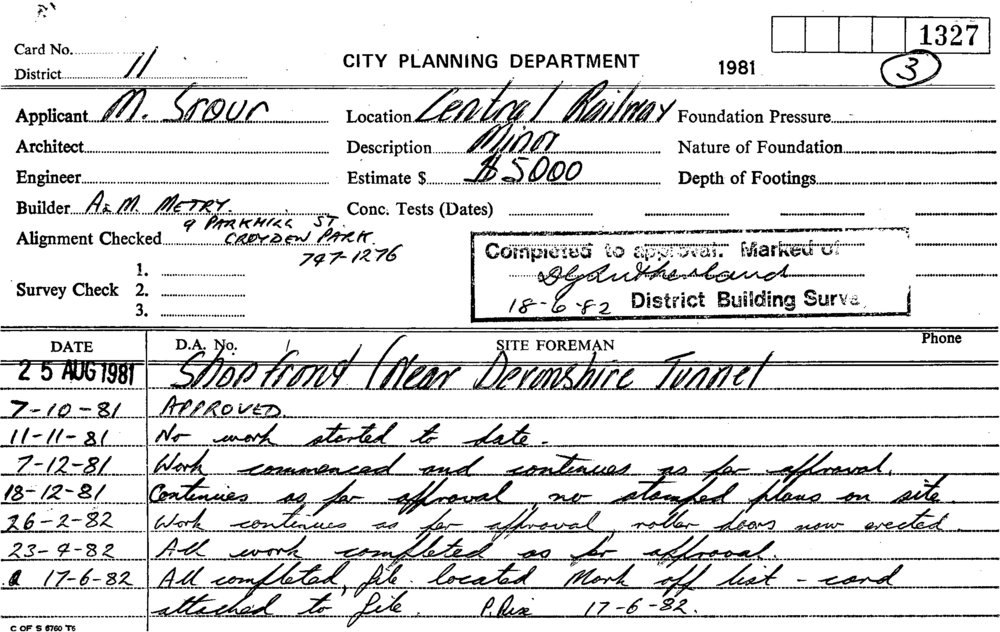 Card No.
1327
District 11
CITY PLANNING DEPARTMENT
1981
3
Applicant M. Srour
Location Central Railway
Foundation Pressure
Architect
Description Minor
Nature of Foundation
Engineer
Estimate $ $5000
Depth of Footings
Builder A & M. METRY.
9 PARKHILL ST.
Conc. Tests (Dates)
Alignment Checked CROYDEN PARK.
747-1276
Completed to approval. Marked of
18-6-82 District Building Surve
Survey Check 1.
2.
3.
DATE D.A. No. SITE FOREMAN Phone
25 AUG 1981 Shopfront (Near Devonshire Tunnel
7-10-81 APPROVED.
11-11-81 No work started to date.
7-12-81 Work commenced and continues as per approval.
18-12-81 Continues as per approval no stamped plans on site.
26-2-82 Work continues as per approval, roller doors now erected.
23-4-82 All work completed as per approval.
17-6-82 All completed, file located Mark off list - card
attached to file. P. Rix 17-6-82.
C OF S 6760 T6